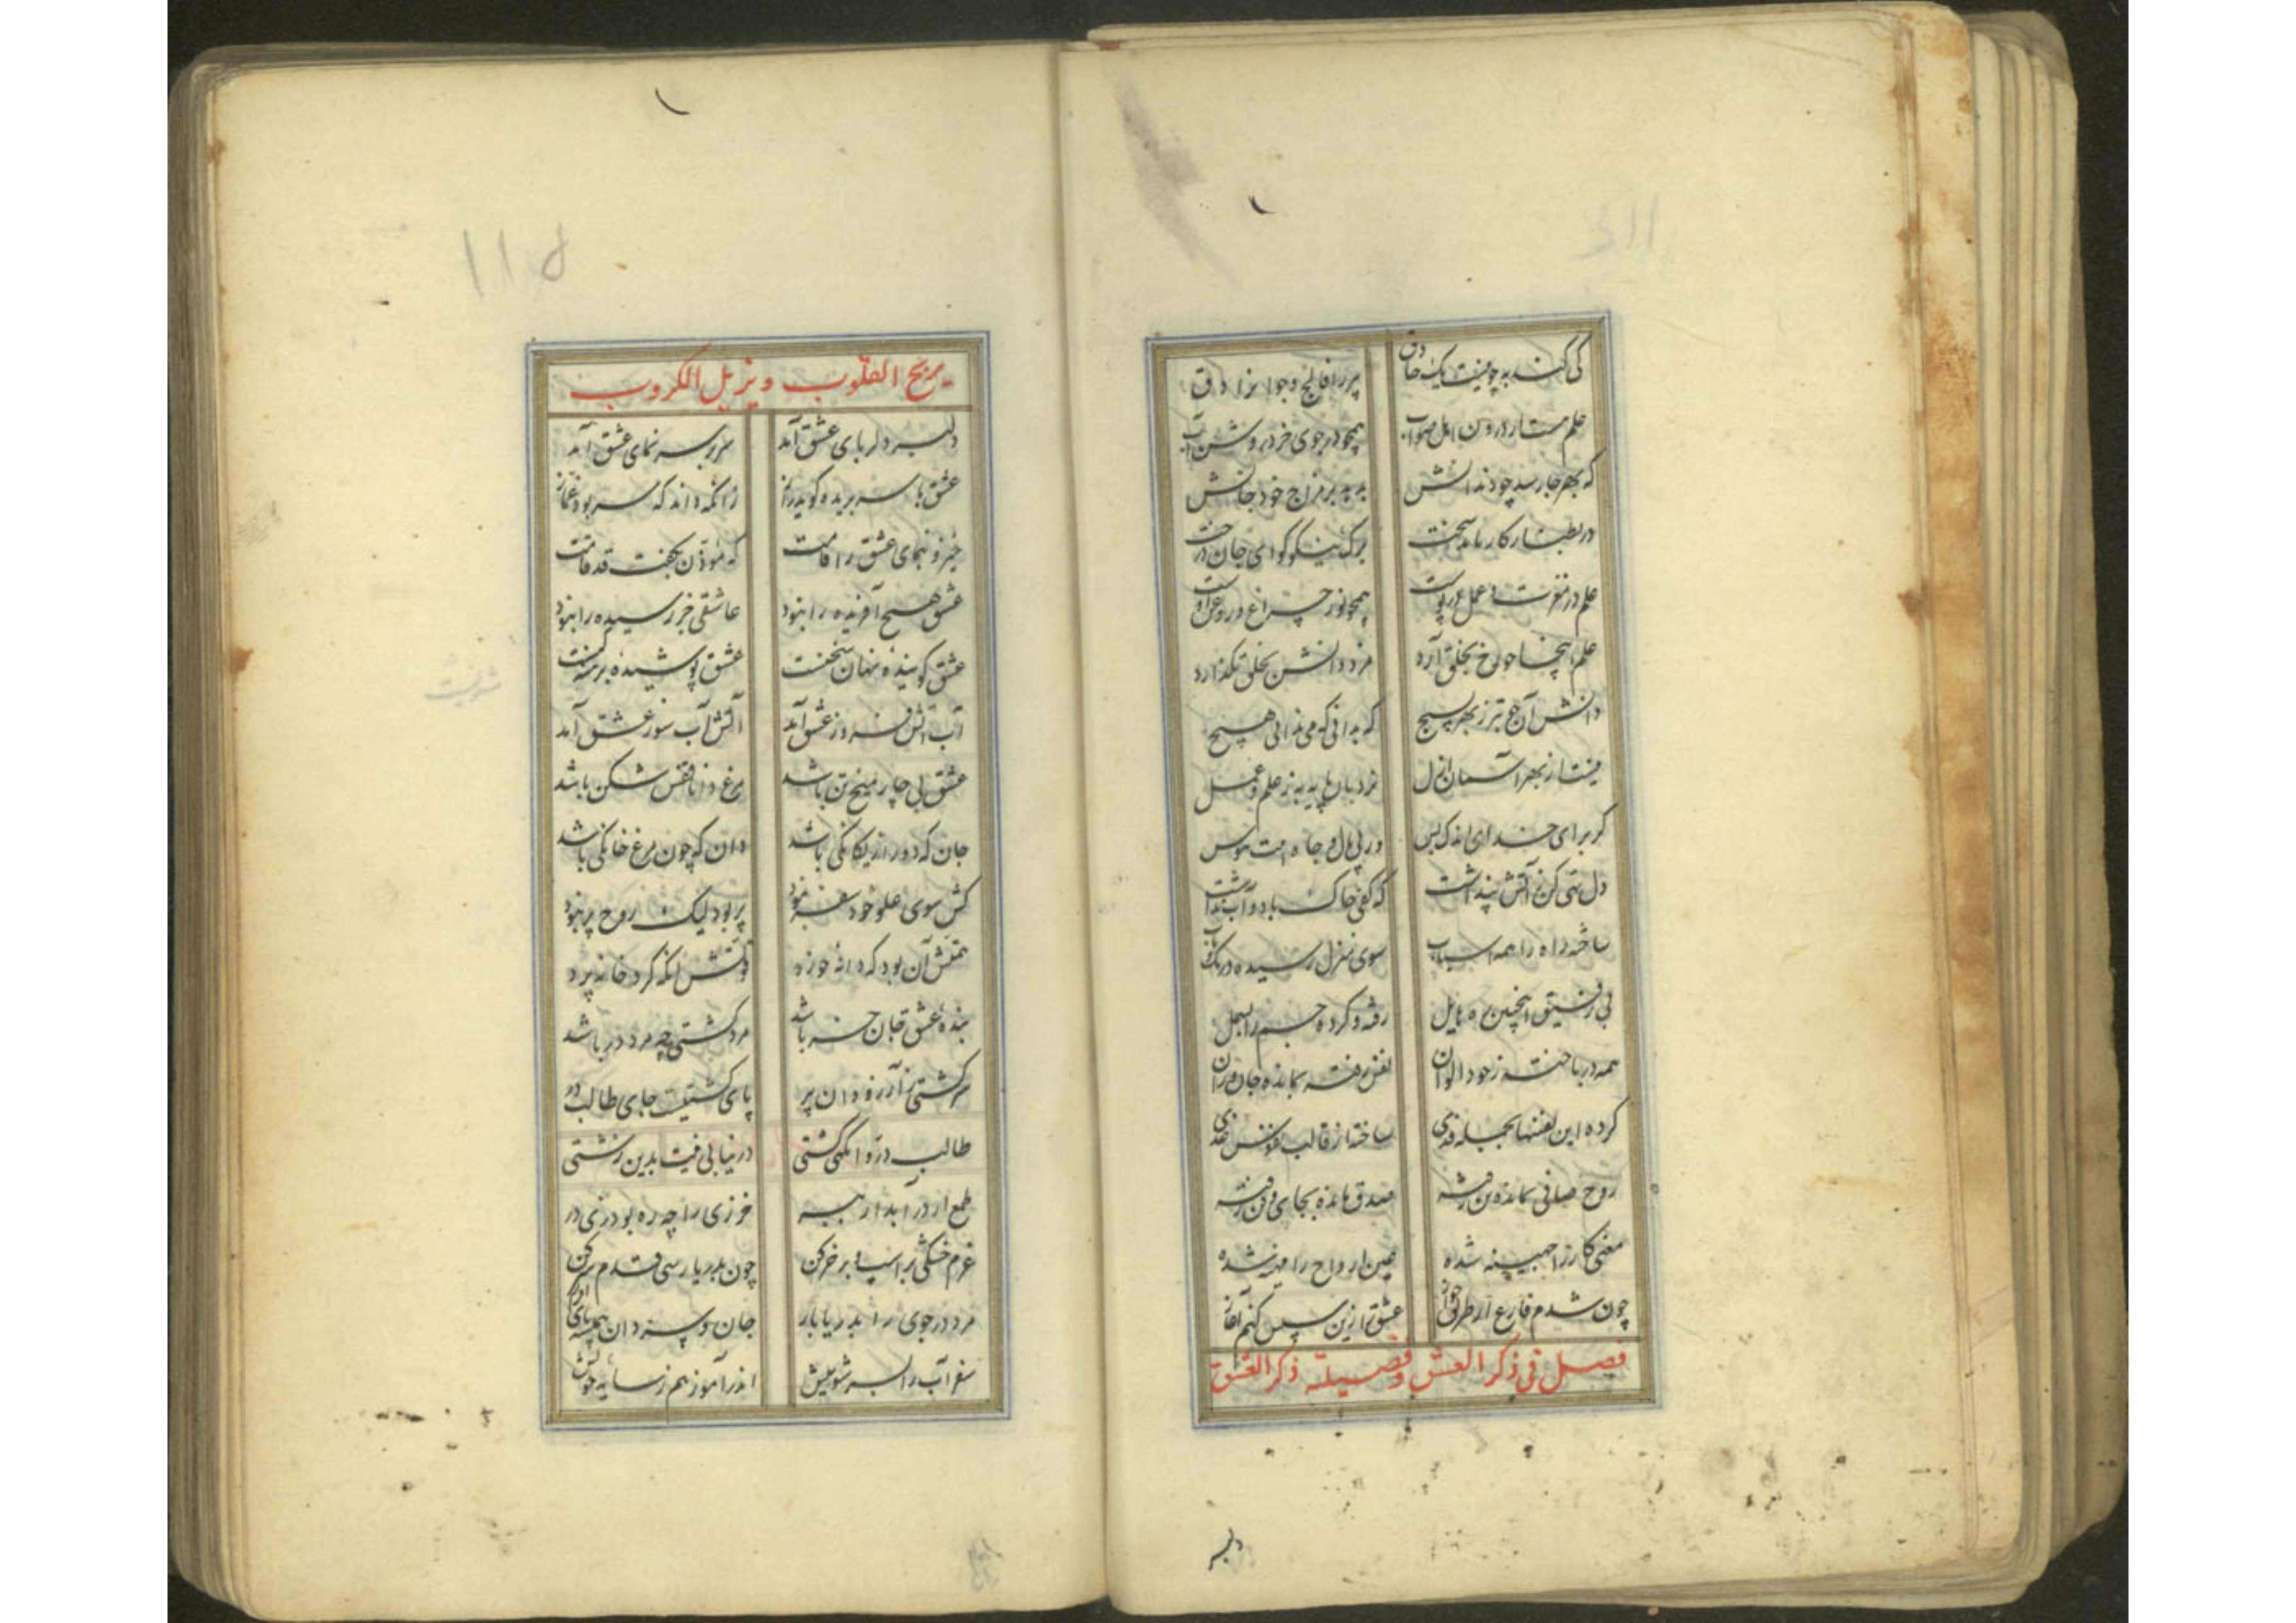 کی کند به چو نیست یک حاذق پیر را فالج و جوانرا دق
علم هست از درون اهل صواب همچو در جوی خرد روشن آب
که بهر جا رسد چو دندانش بدمد بر مزاج خود جانش
برگ نیکو کوامی جان درخت
علم در مغزت و عمل در پوست همچو نور چراغ و روغن اوست
علم اینجا چو رخ بخلق آرد مزد دانش بخلق نگذارد
دانش آن خوبتر ز بهر بسیج که بدانی که می ندانی هیچ
نیست از بهر آسمان ازل نردبان پایه به ز علم و عمل
گر برای خدای اندک بس در پی مال و جاه امت هوس
دل تهی کن ز آتش پنداشت که کفی خاک باد و آب نداشت
ساخته راه را همه اسباب سوی منزل رسیده در تک و تاب
بی رفیق اینچنین ره هایل رفته و کرده جسم را بسمل
همه در باخته ز خود الوان نفس رفته بمانده جان و روان
کرده این نفسها بجمله فدی ساخته از قالب نفوس
روح صافی بمانده تن رفته صدق مانده بجای و فن رفته
معنی کارزا همینه شده عین ارواح را شده
چون شدم فارغ از طریق جواز عشق را زین سپس کنم آغاز
فصل فی ذکر العشق و فضیلته ذکر العشق
دلبر
۱۱۵
یریح القلوب و یزیل الکروب
دلبر دلربای عشق آمد سربر سر نمای عشق آمد
عشق با سر بریده گوید راز زانکه داند که سر بود غماز
خیز و بنمای عشق را قامت که مؤذن بگفت قد قامت
عشق هیچ آفریده را نبود عاشقی جز رسیده را نبود
عشق گوینده نهان سخنست عشق پوشیده برهنه کنست
آب آتش فروز عشق آمد آتش آب سوز عشق آمد
عشق بی چار میخ تن باشد مرغ دانا قفس شکن باشد
جان که دور از یگانگی باشد دان که چون مرغ خانگی باشد
کش سوی علو خود سفر نبود پر بود لیک روح پر نبود
همتش آن بود که دانه خورد قوتش آنکه گرد خانه پرد
بنده عشق جان حر باشد مرد کشتی چه مرد در باشد
سر کشتی ز آرزو دان پر پای کشتیست جای طالب در
طالب در و آنگهی کشتی در نیابی نیت بدین زشتی
طمع از در آبدار ببر خرزی را چه ره بود زی در
عزم خشکی بر اسپ و بر خر کن چون بدریا رسی قدم سر کن
مرد درجوی را بدریا بار جان و سر دان همیشه پای افزار
سفر آب را بسر شو پیش اندرآموز هم ز سایه خویش